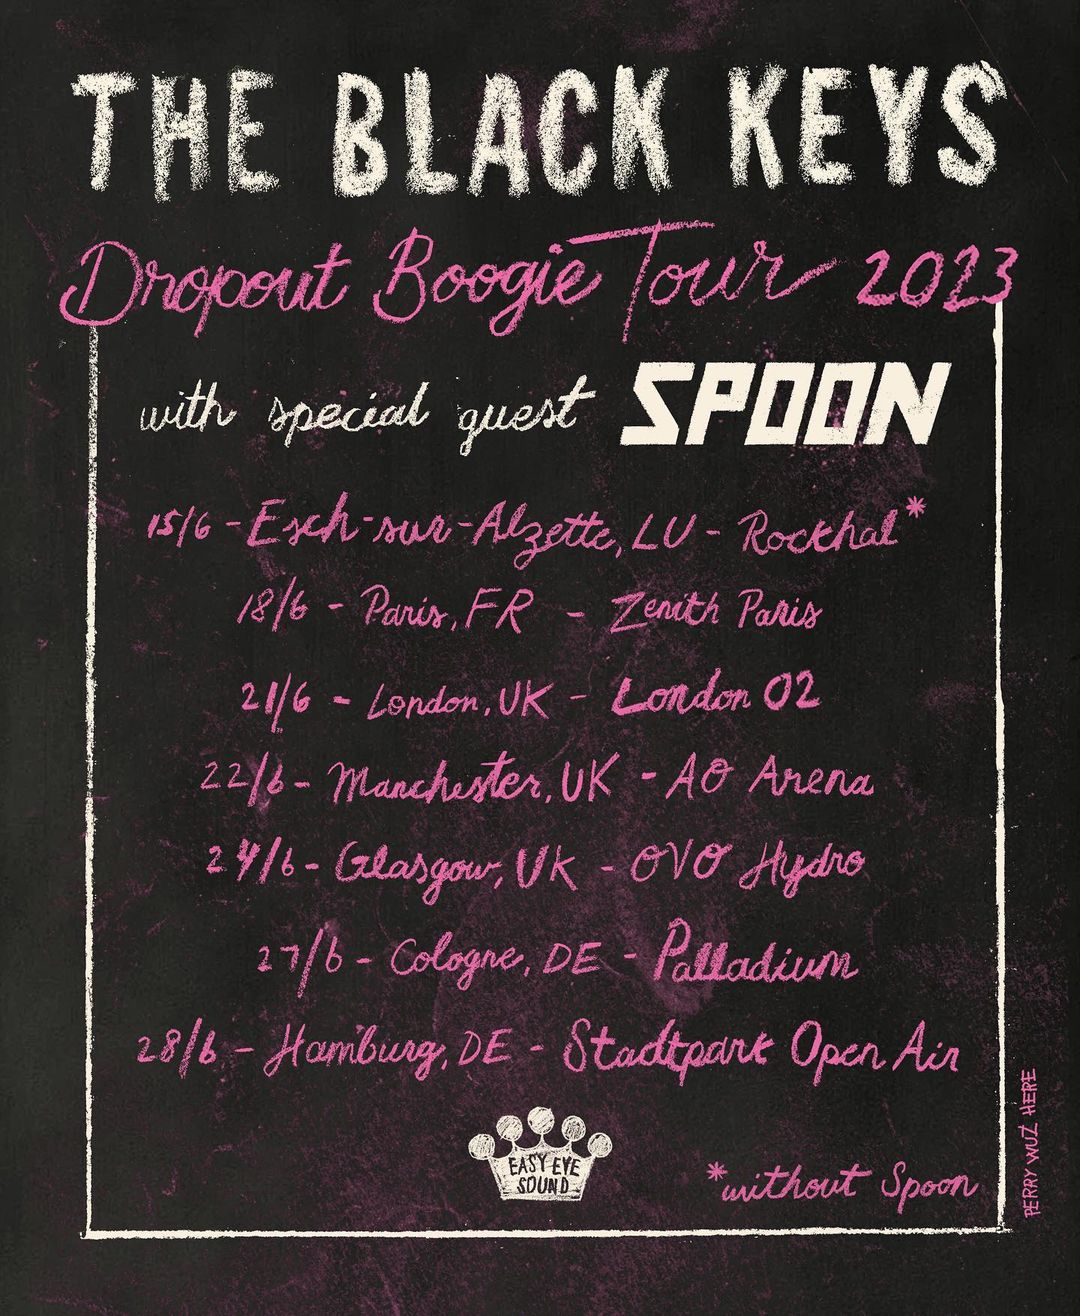 THE BLACK KEYS
Dropout Boogie Tour 2023
with special guest SPOON
15/6 - Esch-sur-Alzette, LU - Rockhal*
18/6 - Paris, FR - Zenith Paris
21/6 - London, UK - London O2
22/6 - Manchester, UK - AO Arena
24/6 - Glasgow, UK - OVO Hydro
27/6 - Cologne, DE - Palladium
28/6 - Hamburg, DE - Stadtpark Open Air
EASY EYE
SOUND
*without Spoon
PERRY WUZ HERE